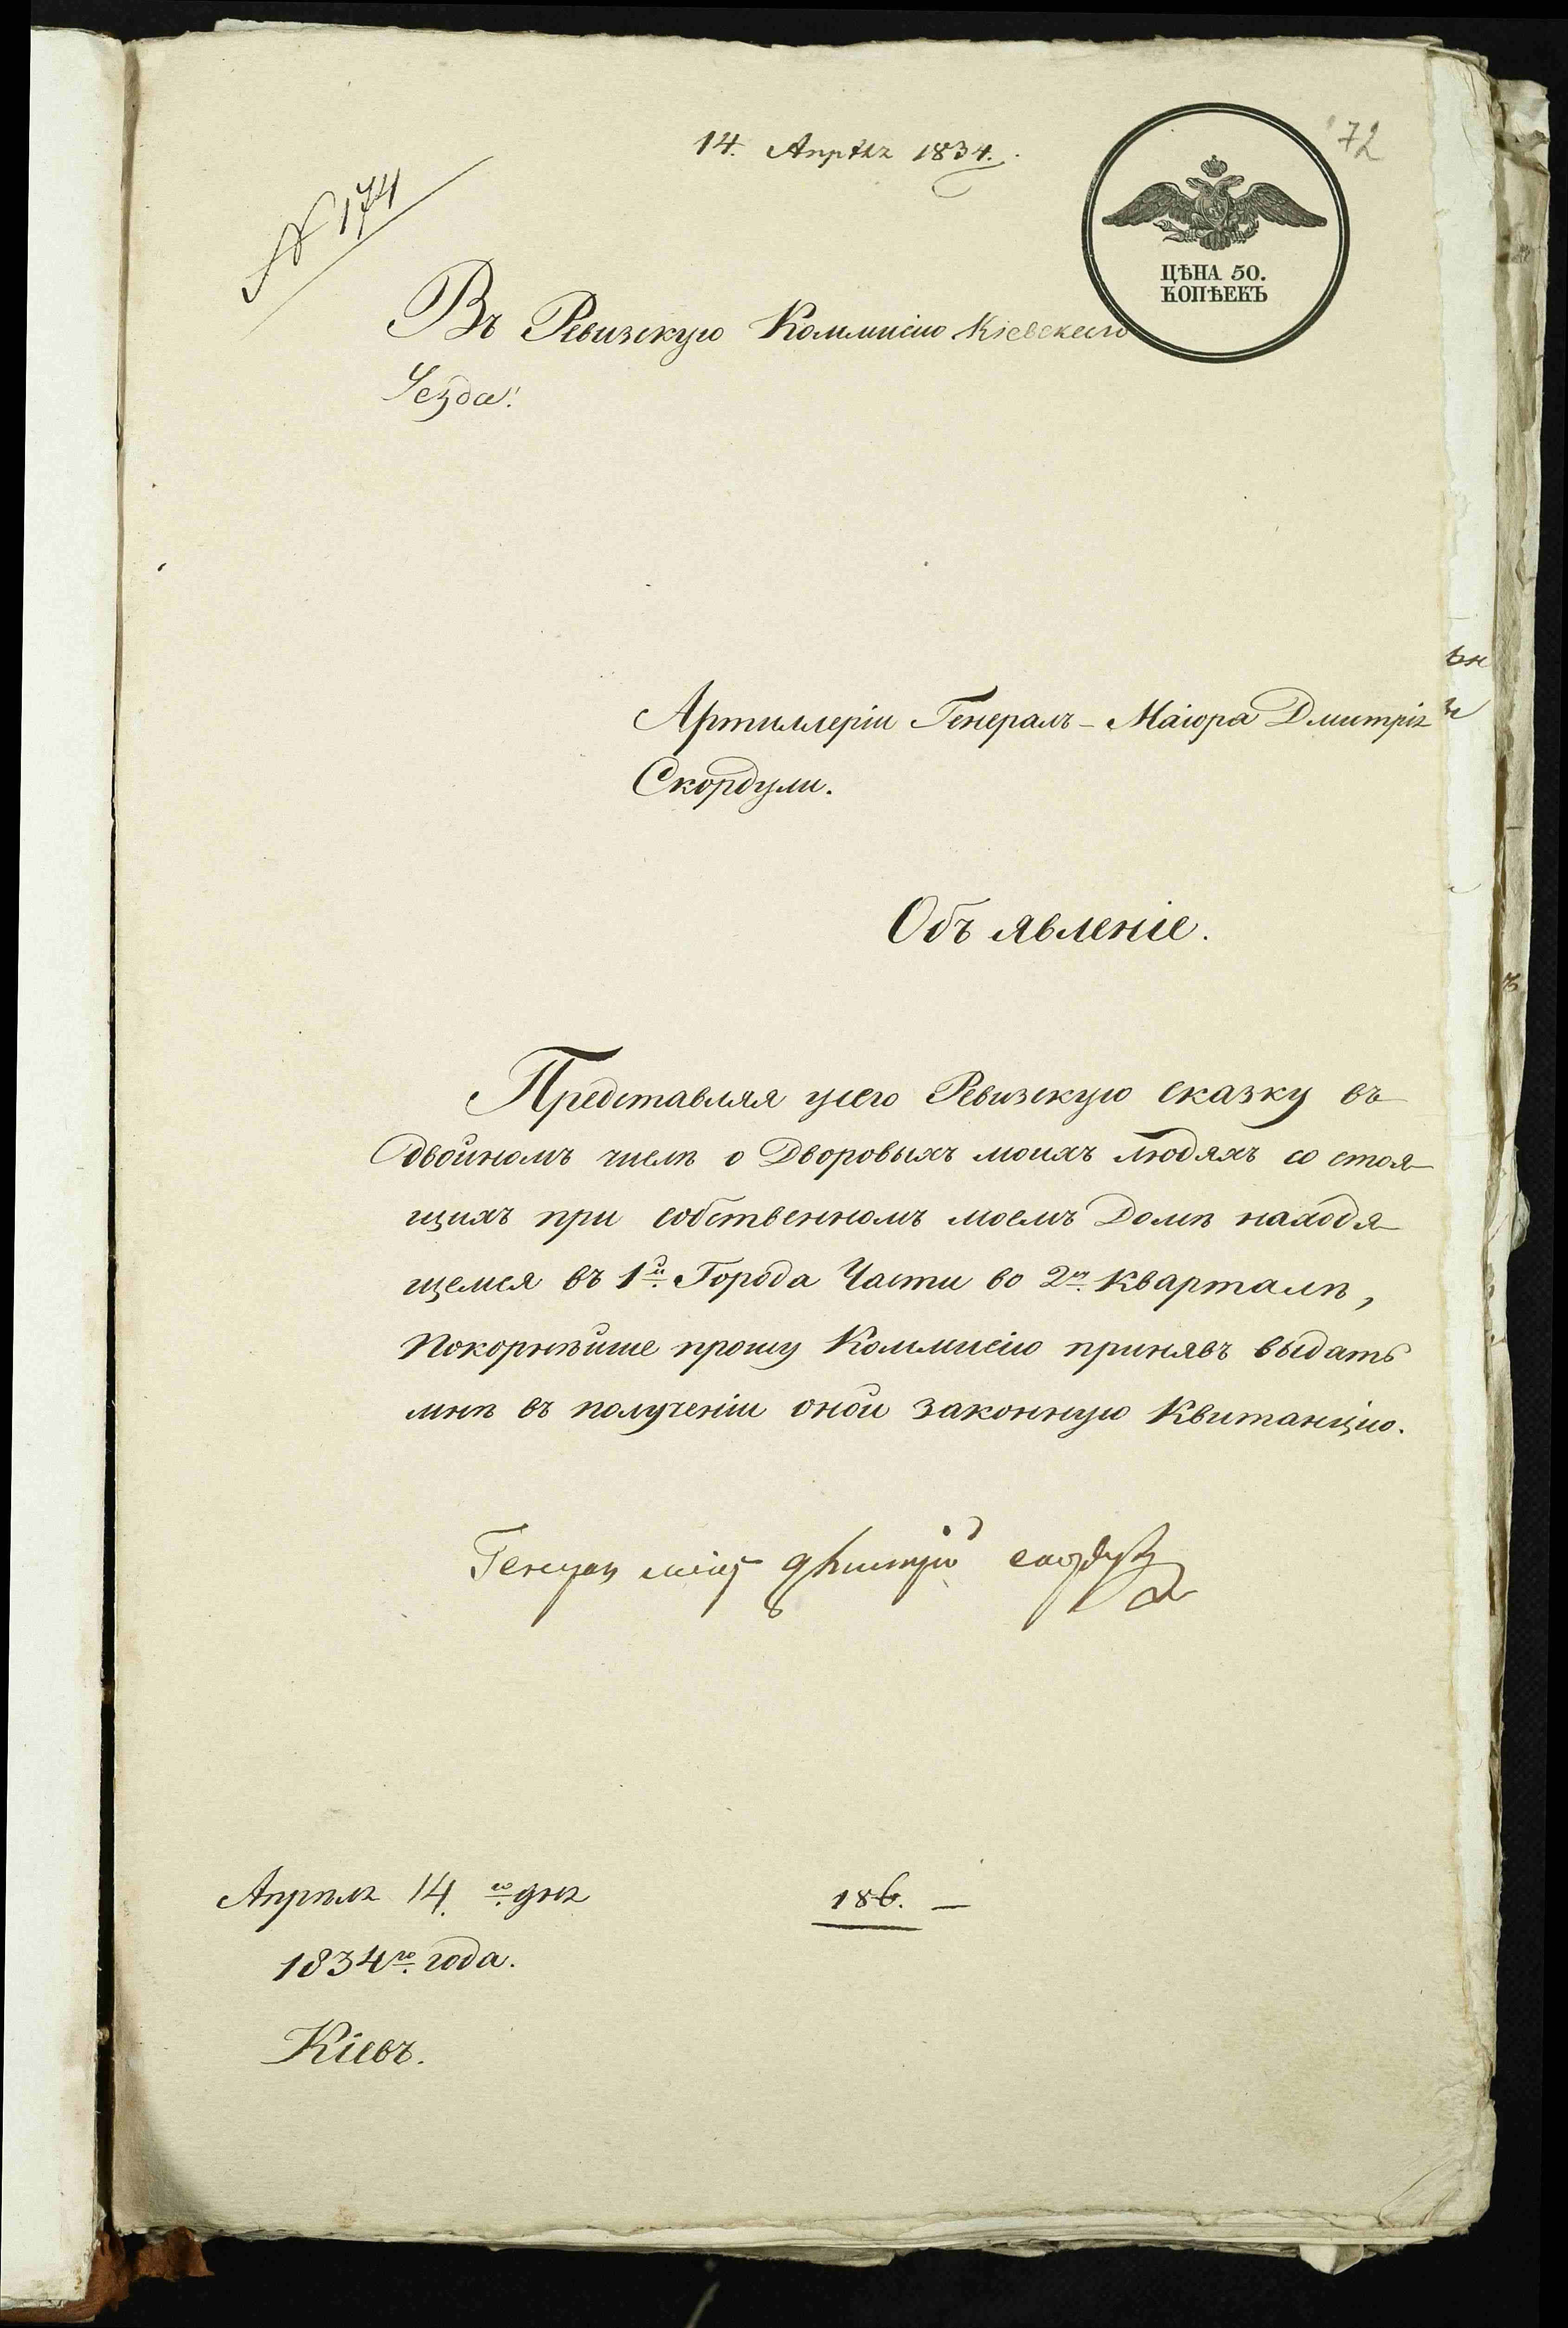 14. Апрѣля 1834.
72
№ 174
ЦѢНА 50.
КОПѢЕКЪ
Въ Ревизскую Коммисію Кіевскаго
Уезда.
Артиллеріи Генералъ-Маіора Дмитрія
Скордули.
Объявленіе.
Представляя у сего Ревизскую сказку въ
двойномъ числѣ о Дворовыхъ моихъ людяхъ состоя-
щихъ при собственномъ моемъ Домѣ находя-
щемся въ 1й Города Части во 2м Кварталѣ,
Покорнѣйше прошу Коммисію принявъ выдать
мнѣ въ полученіи оной законную Квитанцію.
Апрѣля 14го дня
186. —
1834го года.
Кіевъ.